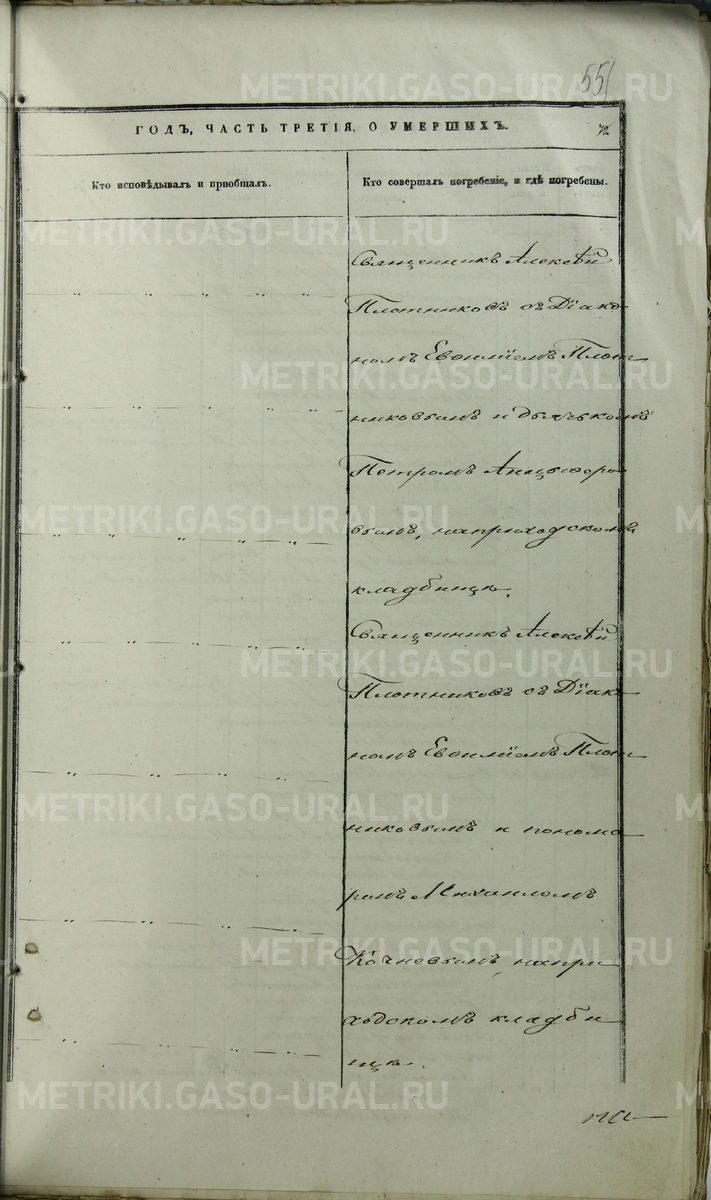 METRIKI.GASO-URAL.RU
551
ГОДЪ, ЧАСТЬ ТРЕТІЯ, О УМЕРШИХЪ.
Кто исповѣдывалъ и пріобщалъ.
Кто совершалъ погребеніе, и гдѣ погребены.
Священникъ Алексѣй
Плотниковъ съ Діако
номъ Евѳиміемъ Плот
никовымъ и дьячькомъ
Петромъ Анцыферо
вымъ, на приходскомъ
кладбищѣ.
Священникъ Алексѣй
Плотниковъ съ Діако
номъ Евѳиміемъ Плот
никовымъ и понома
ремъ Михаиломъ
Кочневымъ, на при
ходскомъ кладби
щѣ.